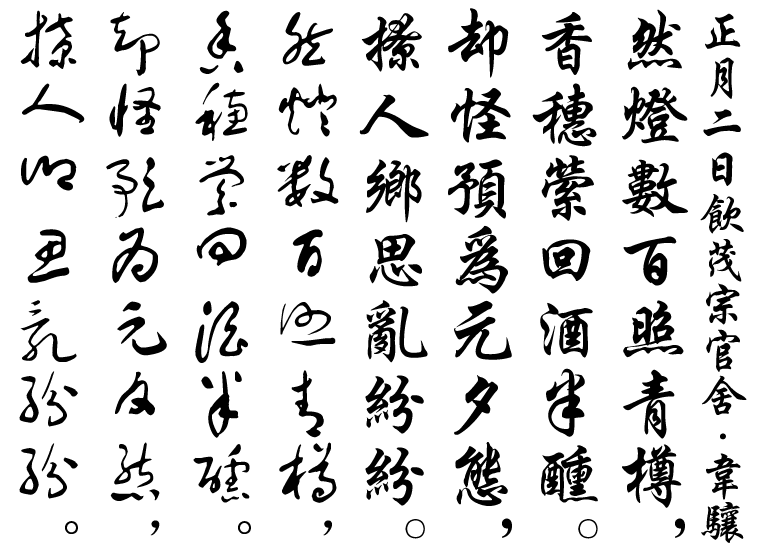 正月二日飲茂宗官舍·韋驤
然燈數百照青樽，
香穗縈回酒半醺。
却怪預爲元夕態，
撩人鄉思亂紛紛。
然燈數百照青樽，
香穗縈回酒半醺。
却怪預為元夕態，
撩人鄉思亂紛紛。